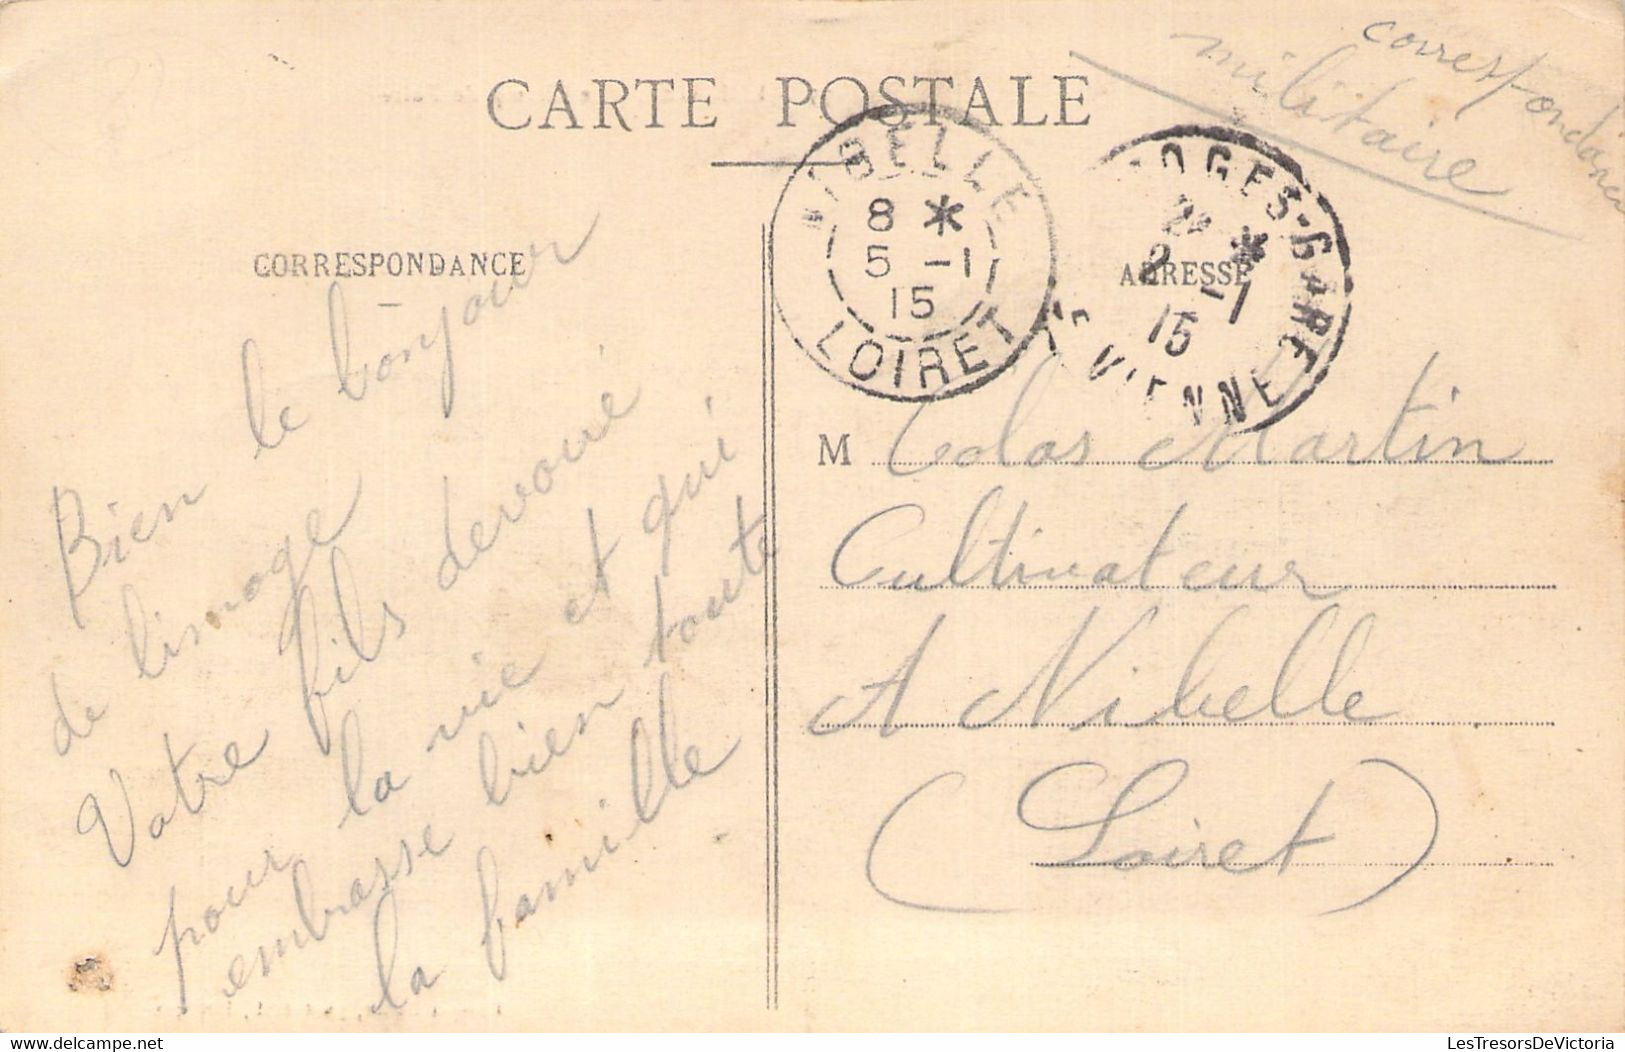 correspondance
militaire
CARTE POSTALE
NIBELLE
8 *
5 -1
15
LOIRET
OGES-GARE
*
2 -1
15
VIENNE
CORRESPONDANCE
ADRESSE
Bien le bonjour
de limoge
Votre fils devoué
pour la vie et qui
embrasse bien toute
la famille
M Colas Martin
Cultivateur
A Nibelle
(Loiret)
LesTresorsDeVictoria.com
LesTresorsDeVictoria